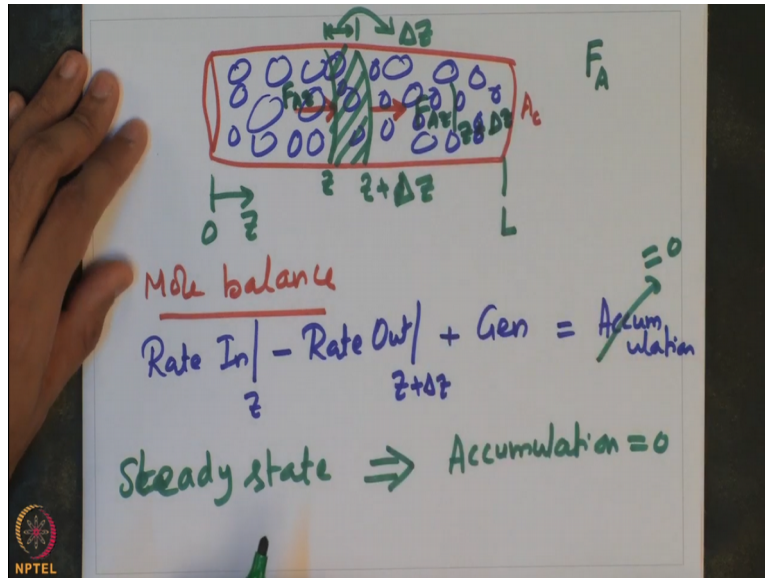 ΔZ
F_A
F_AZ
F_AZ|Z+ΔZ
A_c
Z
Z+ΔZ
0
Z
L
Mole balance
= 0
Rate In|_Z - Rate Out|_Z+ΔZ + Gen = Accumulation
Steady state ⇒ Accumulation = 0
NPTEL